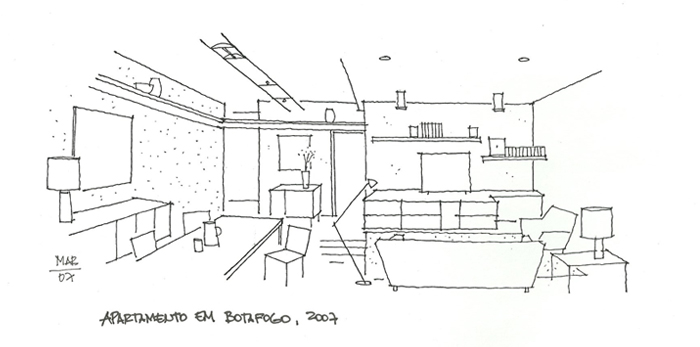 MAR
07
APARTAMENTO EM BOTAFOGO, 2007